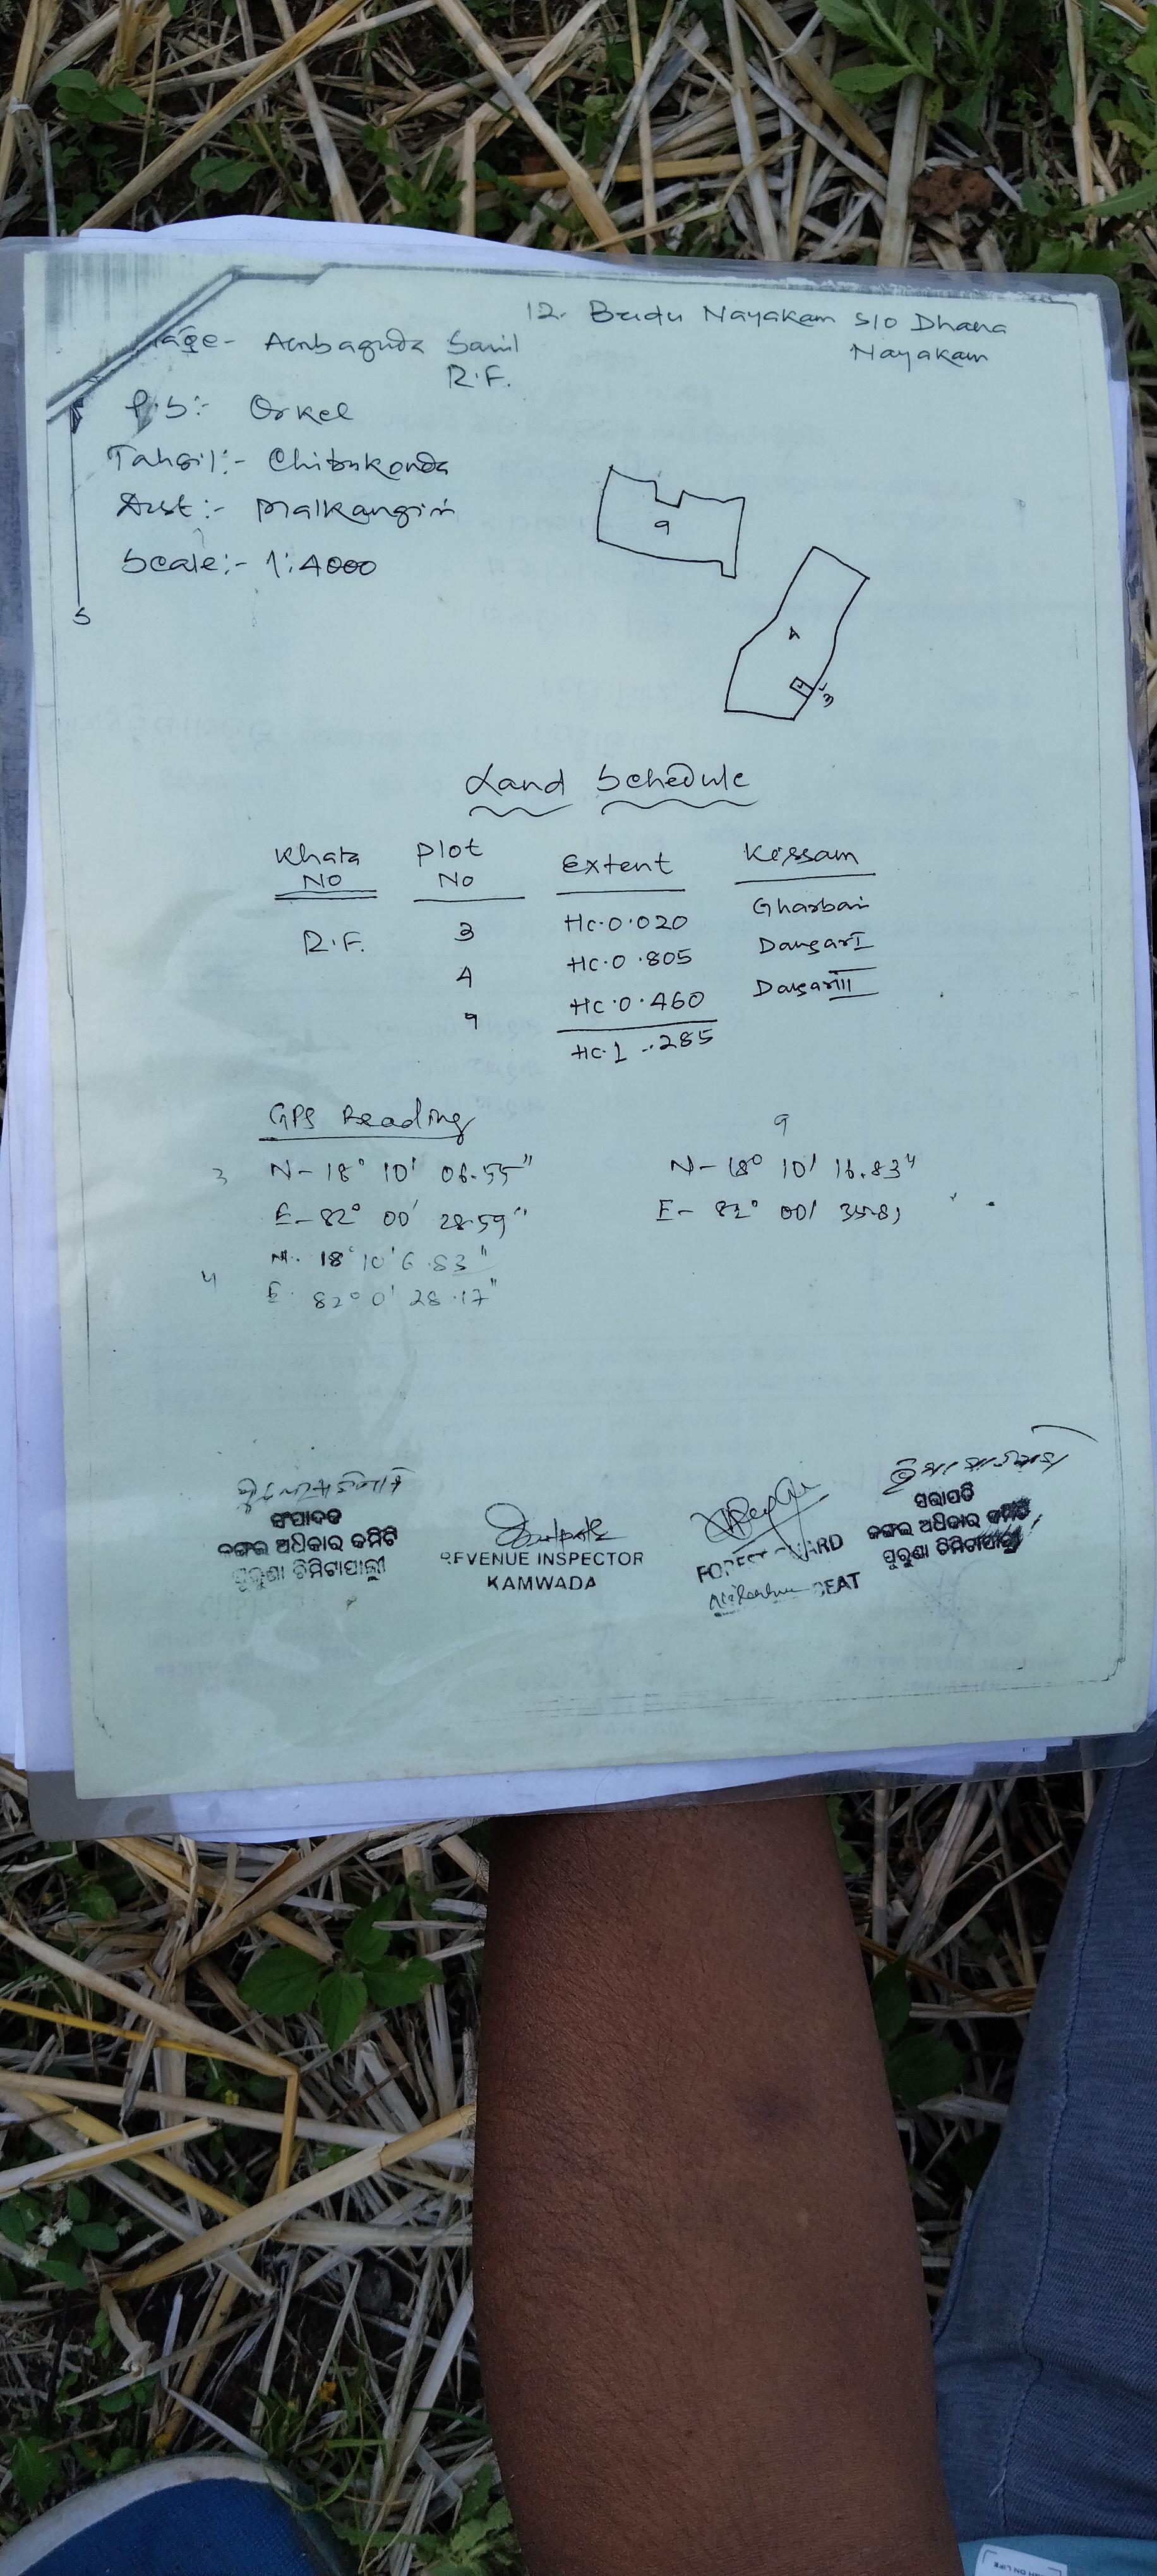 12. Budu Nayakam S/o Dhana
Nayakam
age- Ambaguda Sanil
R.F.
P.S:- Orkel
Tahsil:- Chitrakonda
Dist:- Malkangiri
Scale:- 1:4000
S
9
A
3
Land Schedule
Khata No Plot No Extent Kissam
R.F. 3 Hc.0.020 Gharbari
4 Hc.0.805 Dangar I
9 Hc.0.460 Dangar III
Hc.1.285
GPS Reading
3 N-18° 10' 06.55"
E-82° 00' 28.59"
4 N. 18° 10' 6.83"
E. 82° 0' 28.17"
9
N-18° 10' 16.83"
E- 82° 00'
ସଂପାଦକ
ଜଙ୍ଗଲ ଅଧିକାର କମିଟି
ପୁରୁଣା ଚିମିଟାପାଲ୍ଲୀ
REVENUE INSPECTOR
KAMWADA
FOREST GUARD
BEAT
ସଭାପତି
ଜଙ୍ଗଲ ଅଧିକାର କମିଟି
ପୁରୁଣା ଚିମିଟାପାଲ୍ଲୀ